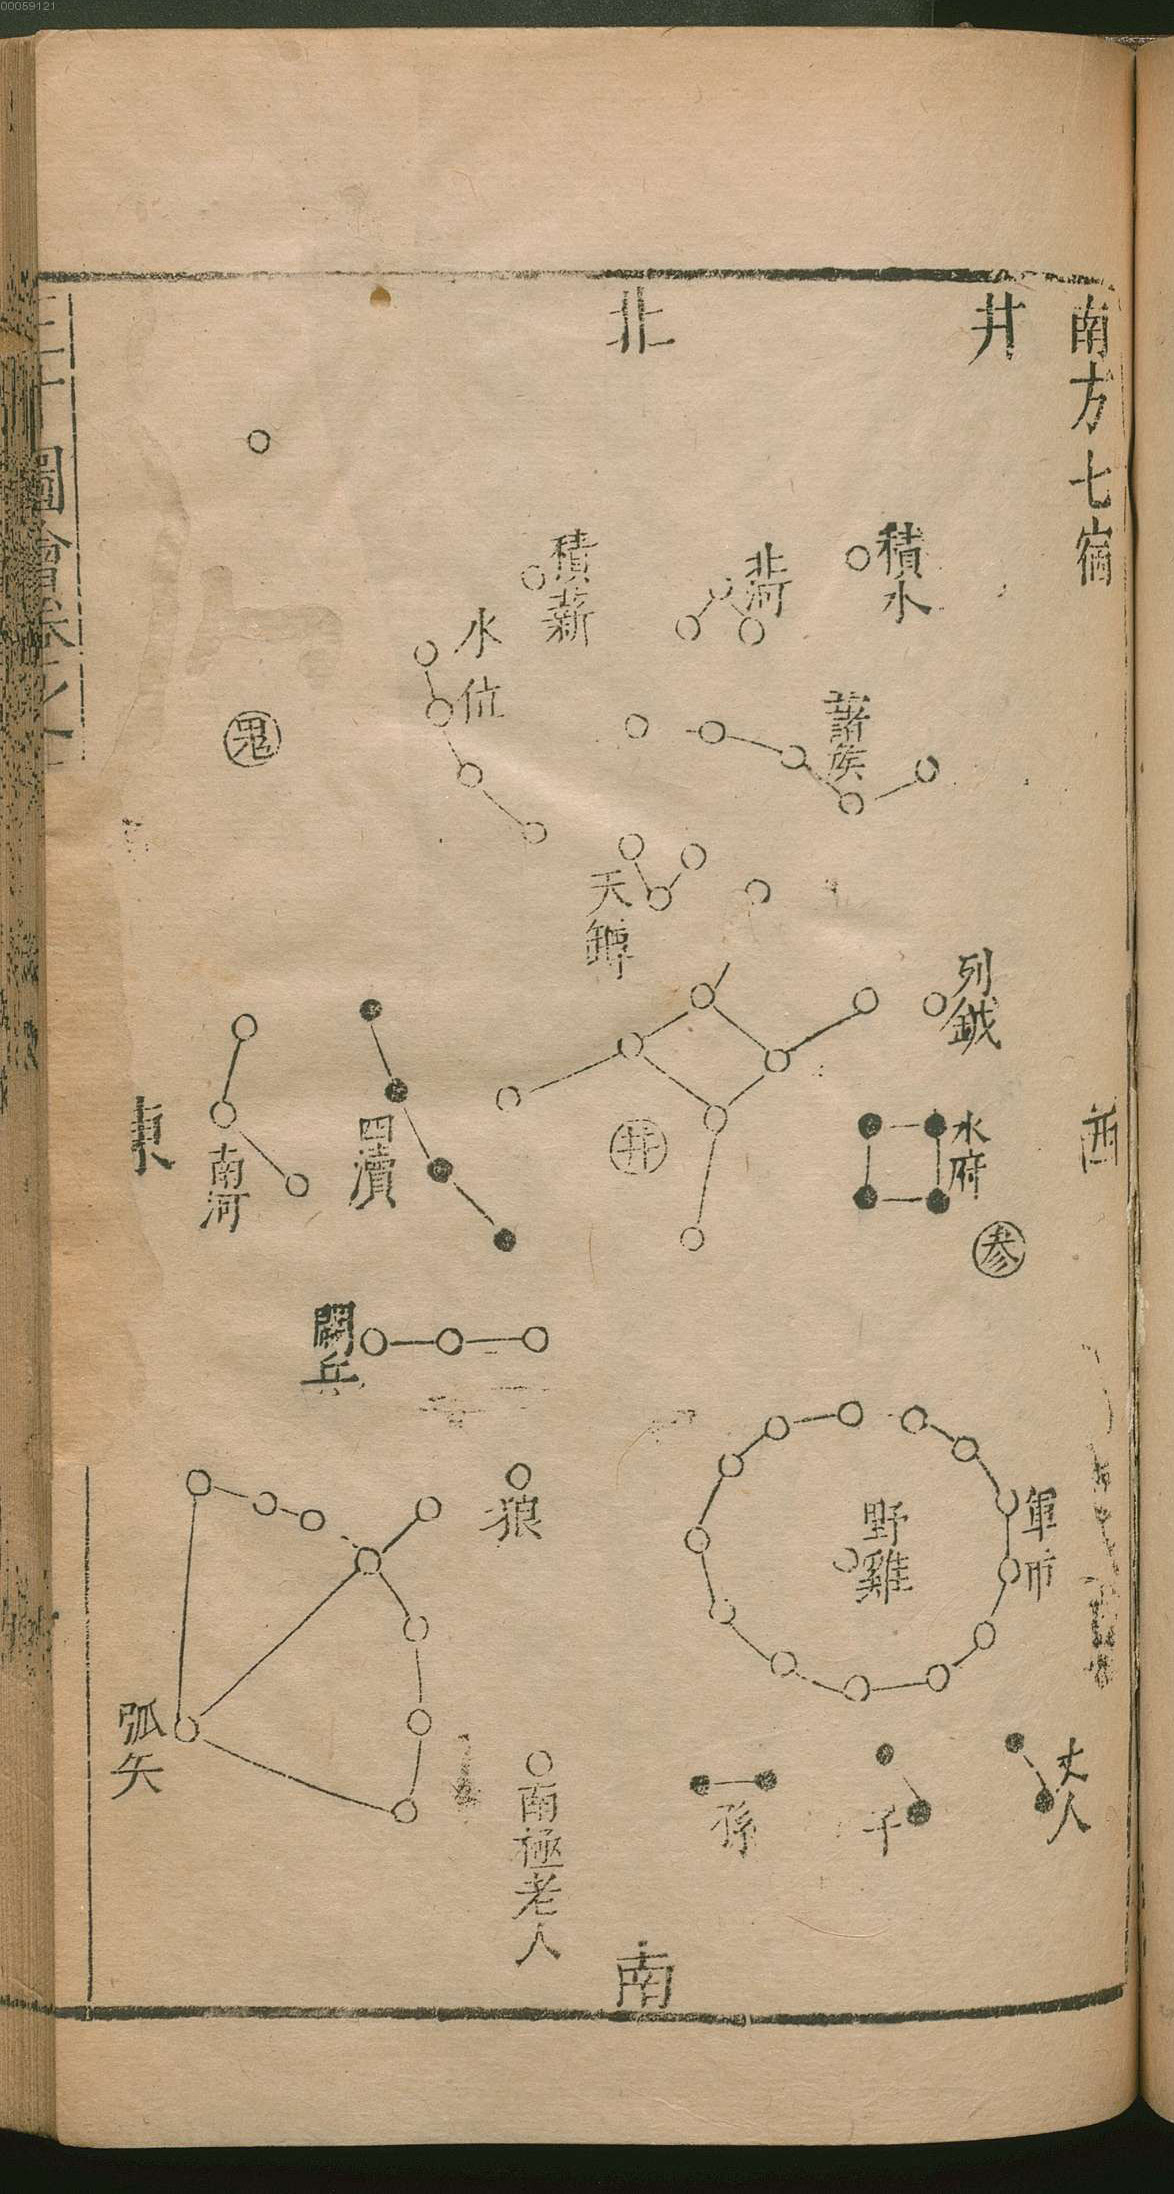 00059121
南方七宿
井
北
積水
北河
積薪
水位
諸矦
鬼
天罇
列鉞
井
水府
參
西
四瀆
南河
東
闕兵
狼
軍市
野雞
弧矢
丈人
子
孫
南極老人
南
圖會卷之